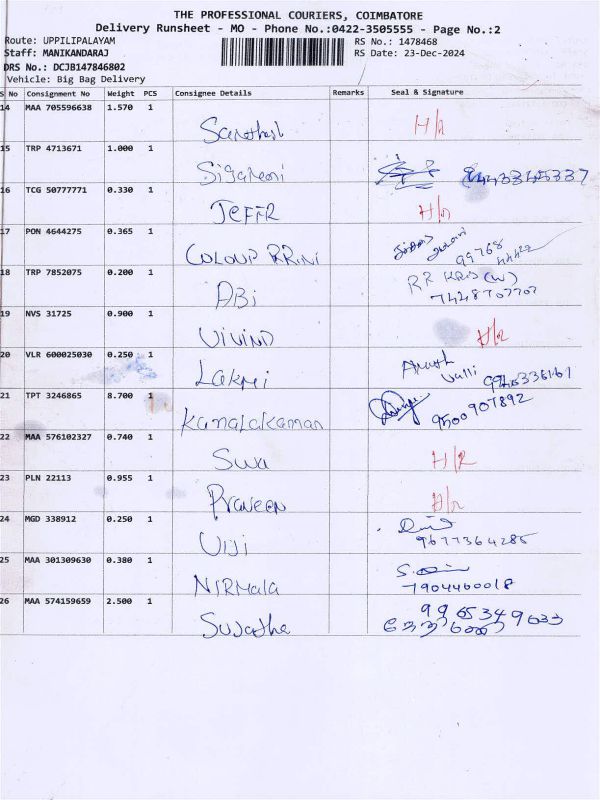 THE PROFESSIONAL COURIERS, COIMBATORE
Delivery Runsheet - MO - Phone No.:0422-3505555 - Page No.:2
Route: UPPILIPALAYAM RS No.: 1478468
Staff: MANIKANDARAJ RS Date: 23-Dec-2024
DRS No.: DCJB147846802
Vehicle: Big Bag Delivery
S No Consignment No Weight PCS Consignee Details Remarks Seal & Signature
14 MAA 705596638 1.570 1 H/R
15 TRP 4713671 1.000 1
16 TCG 50777771 0.330 1 JEFFR H/R
17 PON 4644275 0.365 1 99768 44422
18 TRP 7852075 0.200 1 ABi RR KRIS (W)
19 NVS 31725 0.900 1 VIVIND H/R
20 VLR 600025030 0.250 1 Lakmi Valli
21 TPT 3246865 8.700 1 9500907892
22 MAA 576102327 0.740 1 H/R
23 PLN 22113 0.955 1 Praveen H/R
24 MGD 338912 0.250 1 Viji 9677364285
25 MAA 301309630 0.380 1 NIRMala 7904460018
26 MAA 574159659 2.500 1 Sujatha 9965349633